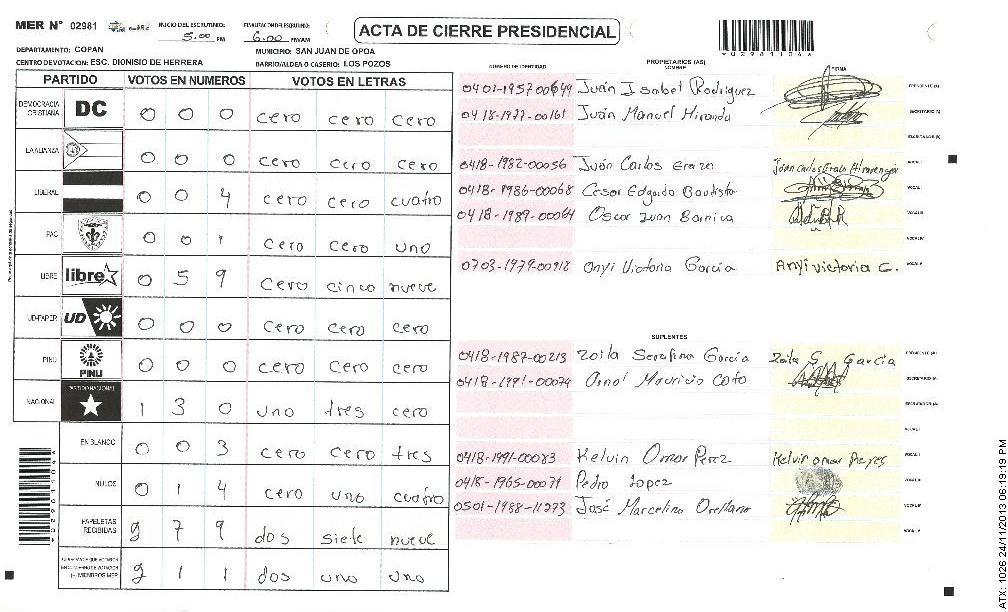 MER N° 02981
INICIO DEL ESCRUTINIO: 5:00 PM
FINALIZACION DEL ESCRUTINIO: 6:00 PM/AM
ACTA DE CIERRE PRESIDENCIAL
DEPARTAMENTO: COPAN
MUNICIPIO: SAN JUAN DE OPOA
CENTRO DE VOTACION: ESC. DIONISIO DE HERRERA
BARRIO/ALDEA O CASERIO: LOS POZOS
PARTIDO VOTOS EN NUMEROS VOTOS EN LETRAS
DEMOCRACIA CRISTIANA DC 0 0 0 cero cero cero
LA ALIANZA 0 0 0 cero cero cero
LIBERAL 0 0 4 cero cero cuatro
PAC 0 0 1 cero cero uno
LIBRE libre 0 5 9 cero cinco nueve
UD-FAPER UD 0 0 0 cero cero cero
PINU PINU 0 0 0 cero cero cero
NACIONAL PARTIDO NACIONAL 1 3 0 uno tres cero
EN BLANCO 0 0 3 cero cero tres
NULOS 0 1 4 cero uno cuatro
PAPELETAS RECIBIDAS 2 7 9 dos siete nueve
2 1 1 dos uno uno
NUMERO DE IDENTIDAD
PROPIETARIOS (AS)
NOMBRE
FIRMA
Juán Isabel Rodriguez PRESIDENTE (A)
0418-1977-00161 Juán Manuel Miranda SECRETARIO (A)
ESCRUTADOR (A)
0418-1982-00056 Juán Carlos Erazo VOCAL I
0418-1986-00068 Cesar Edgardo Bautista VOCAL II
0418-1989-00064 Oscar Juan Barnica VOCAL III
VOCAL IV
0703-1979-00918 Onyi Victoria García Anyi victoria G. VOCAL V
SUPLENTES
0418-1987-00213 Zoila Serafina García Zoila S García PRESIDENTE (A)
0418-1991-00074 Arnol Mauricio Coto SECRETARIO (A)
ESCRUTADOR (A)
VOCAL I
0418-1991-00083 Kelvin Omar Perez Kelvin omar Perez
0418-1965-00071 Pedro Lopez
0501-1988-11273 José Marcelino Orellana
ATX: 1026 24/11/2013 06:19:19 PM